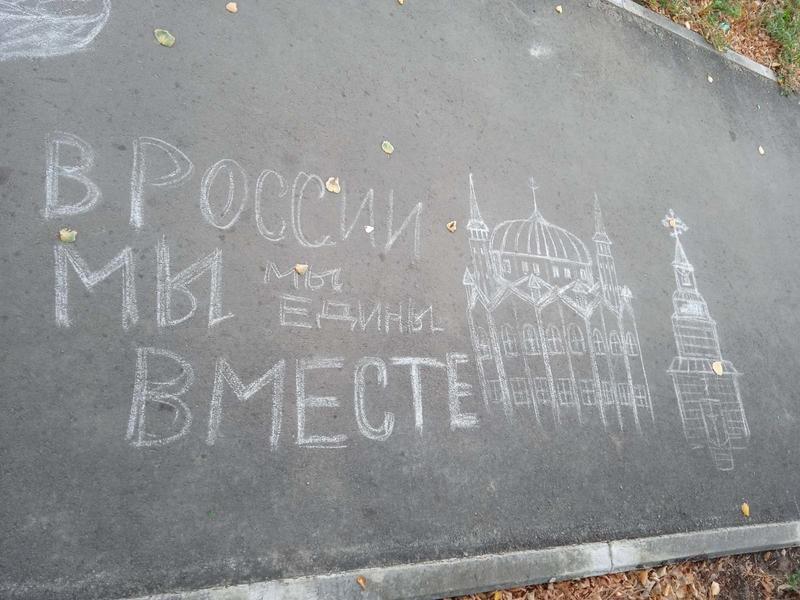 В РОССИИ
МЫ
МЫ
ЕДИНЫ
ВМЕСТЕ